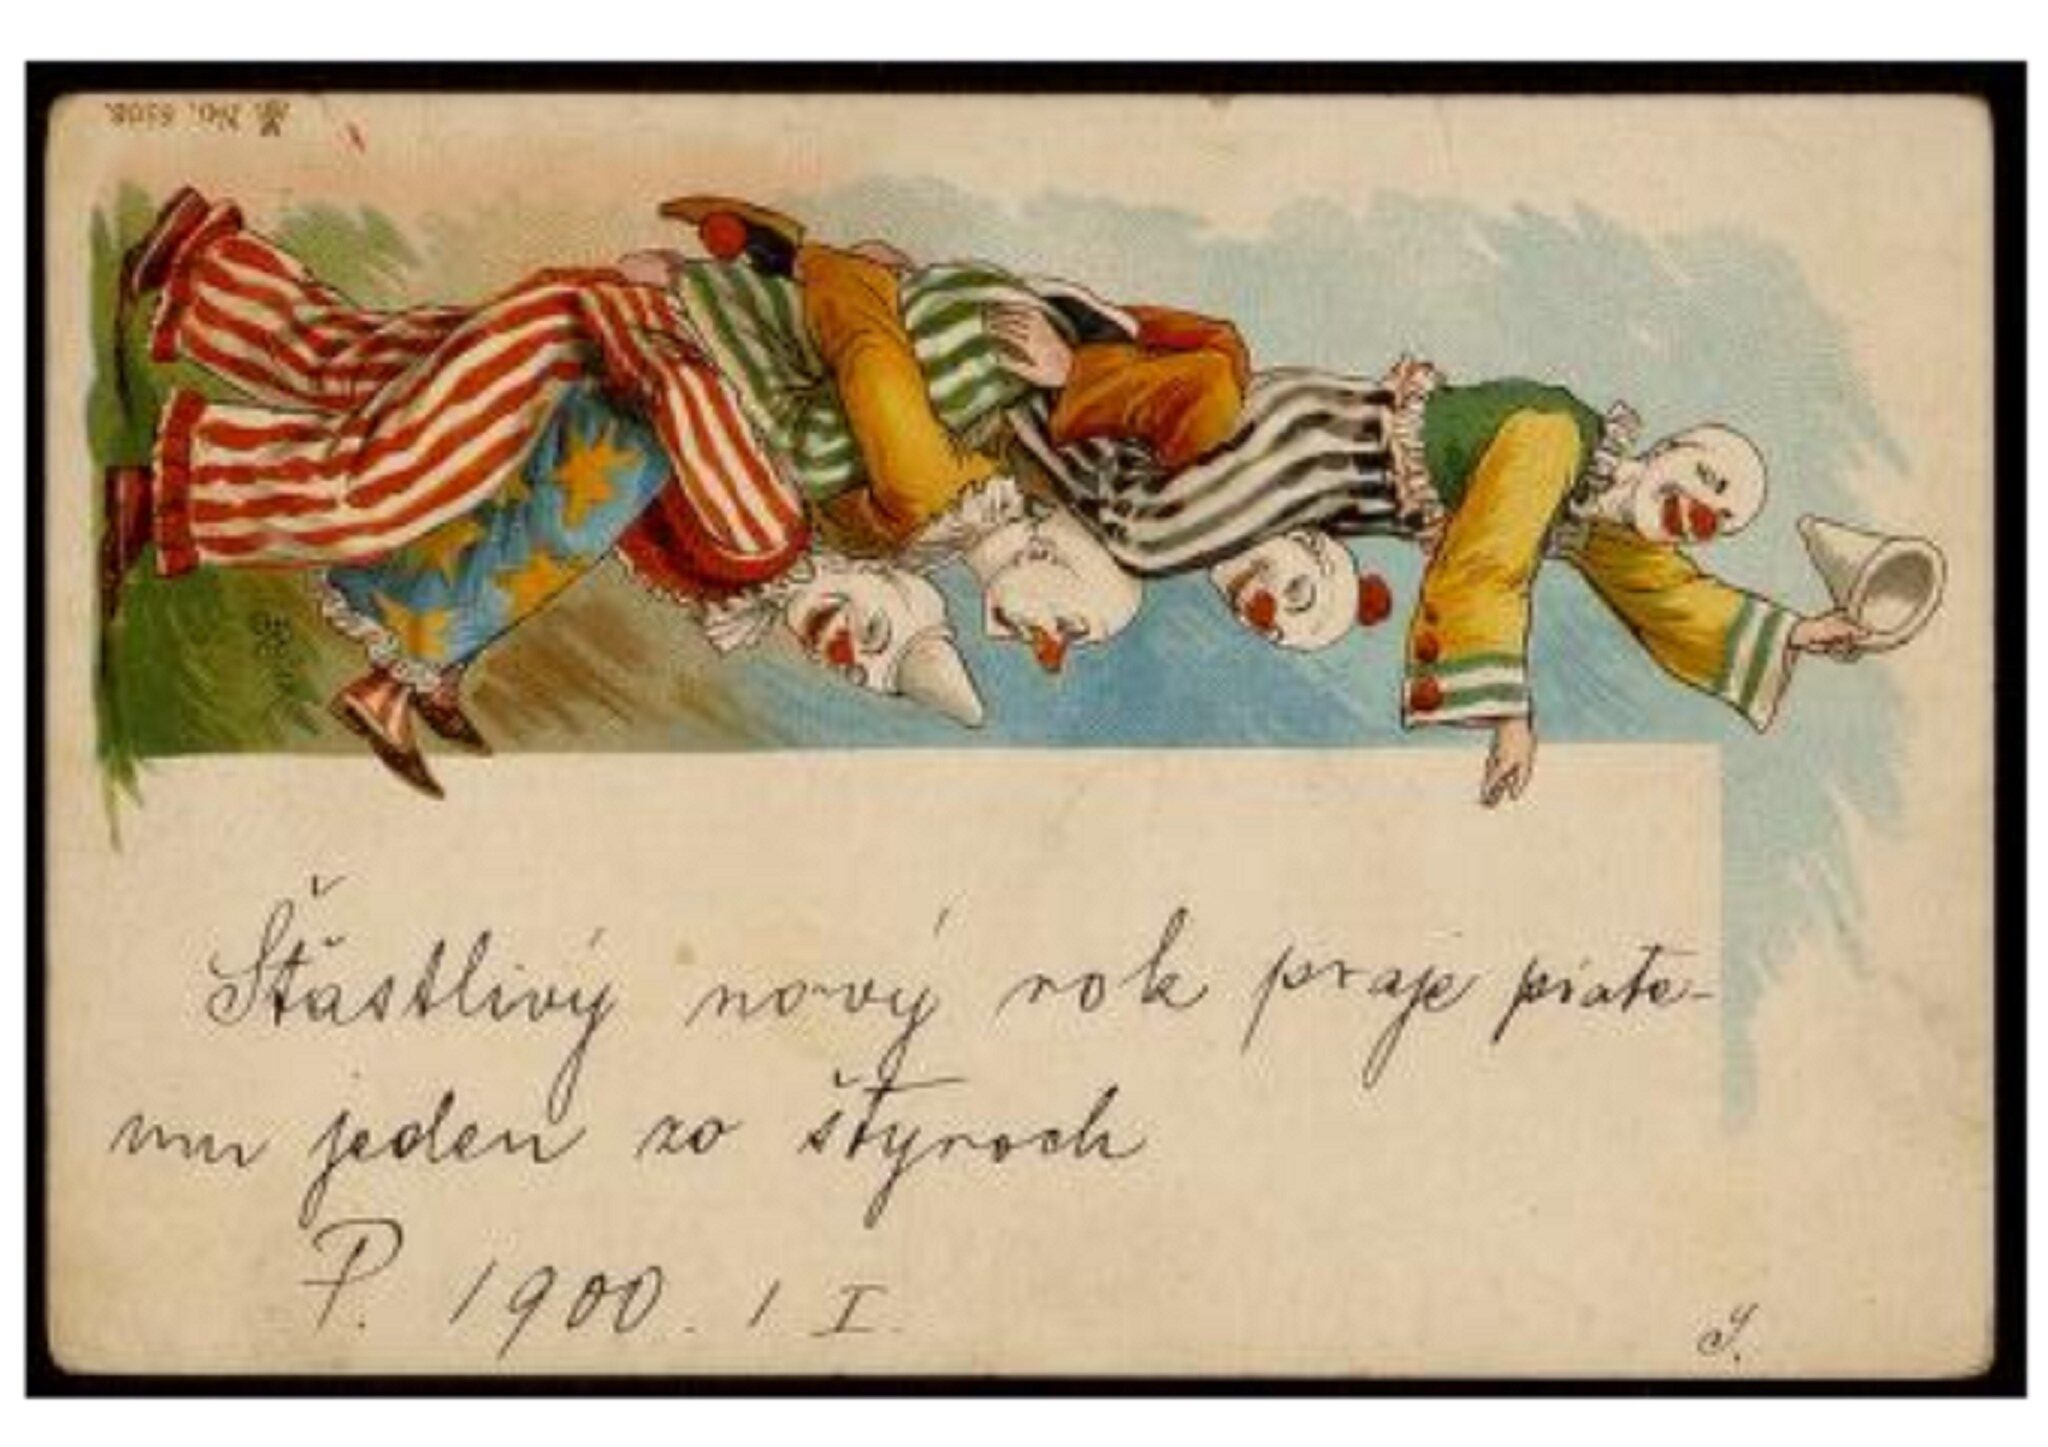 Šťastlivý nový rok praje piate-
mu jeden zo štyroch
P. 1900. 1 I.
J.